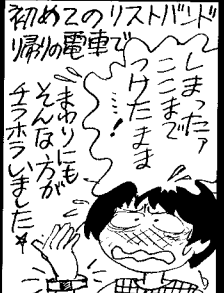 初めてのリストバンド
帰りの電車で
しまったァ
ここまで
つけたまま
…!
まわりにも
そんな方が
チラホラいました☆